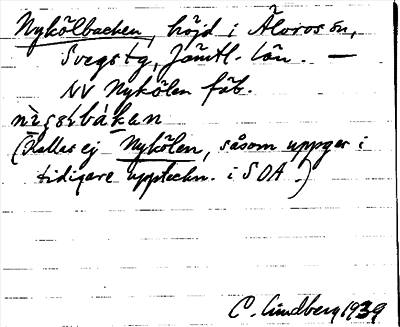 Nykölbacken, höjd i Älvros sn,
Svegs tg, Jämtl. län. —
NV Nykölen fäb.
(Kallas ej Nykölen, såsom uppges i
tidigare uppteckn. i SOA.)
C. Lindberg 1939